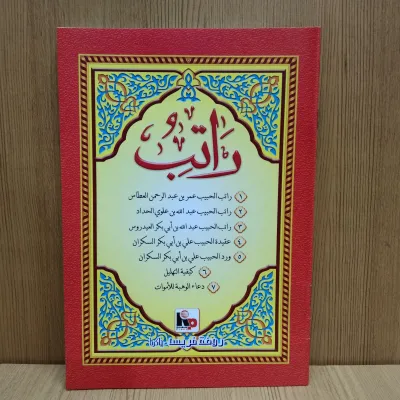 راتب
١ راتب الحبيب عمر بن عبد الرحمن العطاس
٢ راتب الحبيب عبد الله بن علوي الحداد
٣ راتب الحبيب عبد الله بن أبي بكر العيدروس
٤ عقيدة الحبيب علي بن أبي بكر السكران
٥ ورد الحبيب علي بن أبي بكر السكران
٦ كيفية التهليل
٧ دعاء الوهبة للأموات